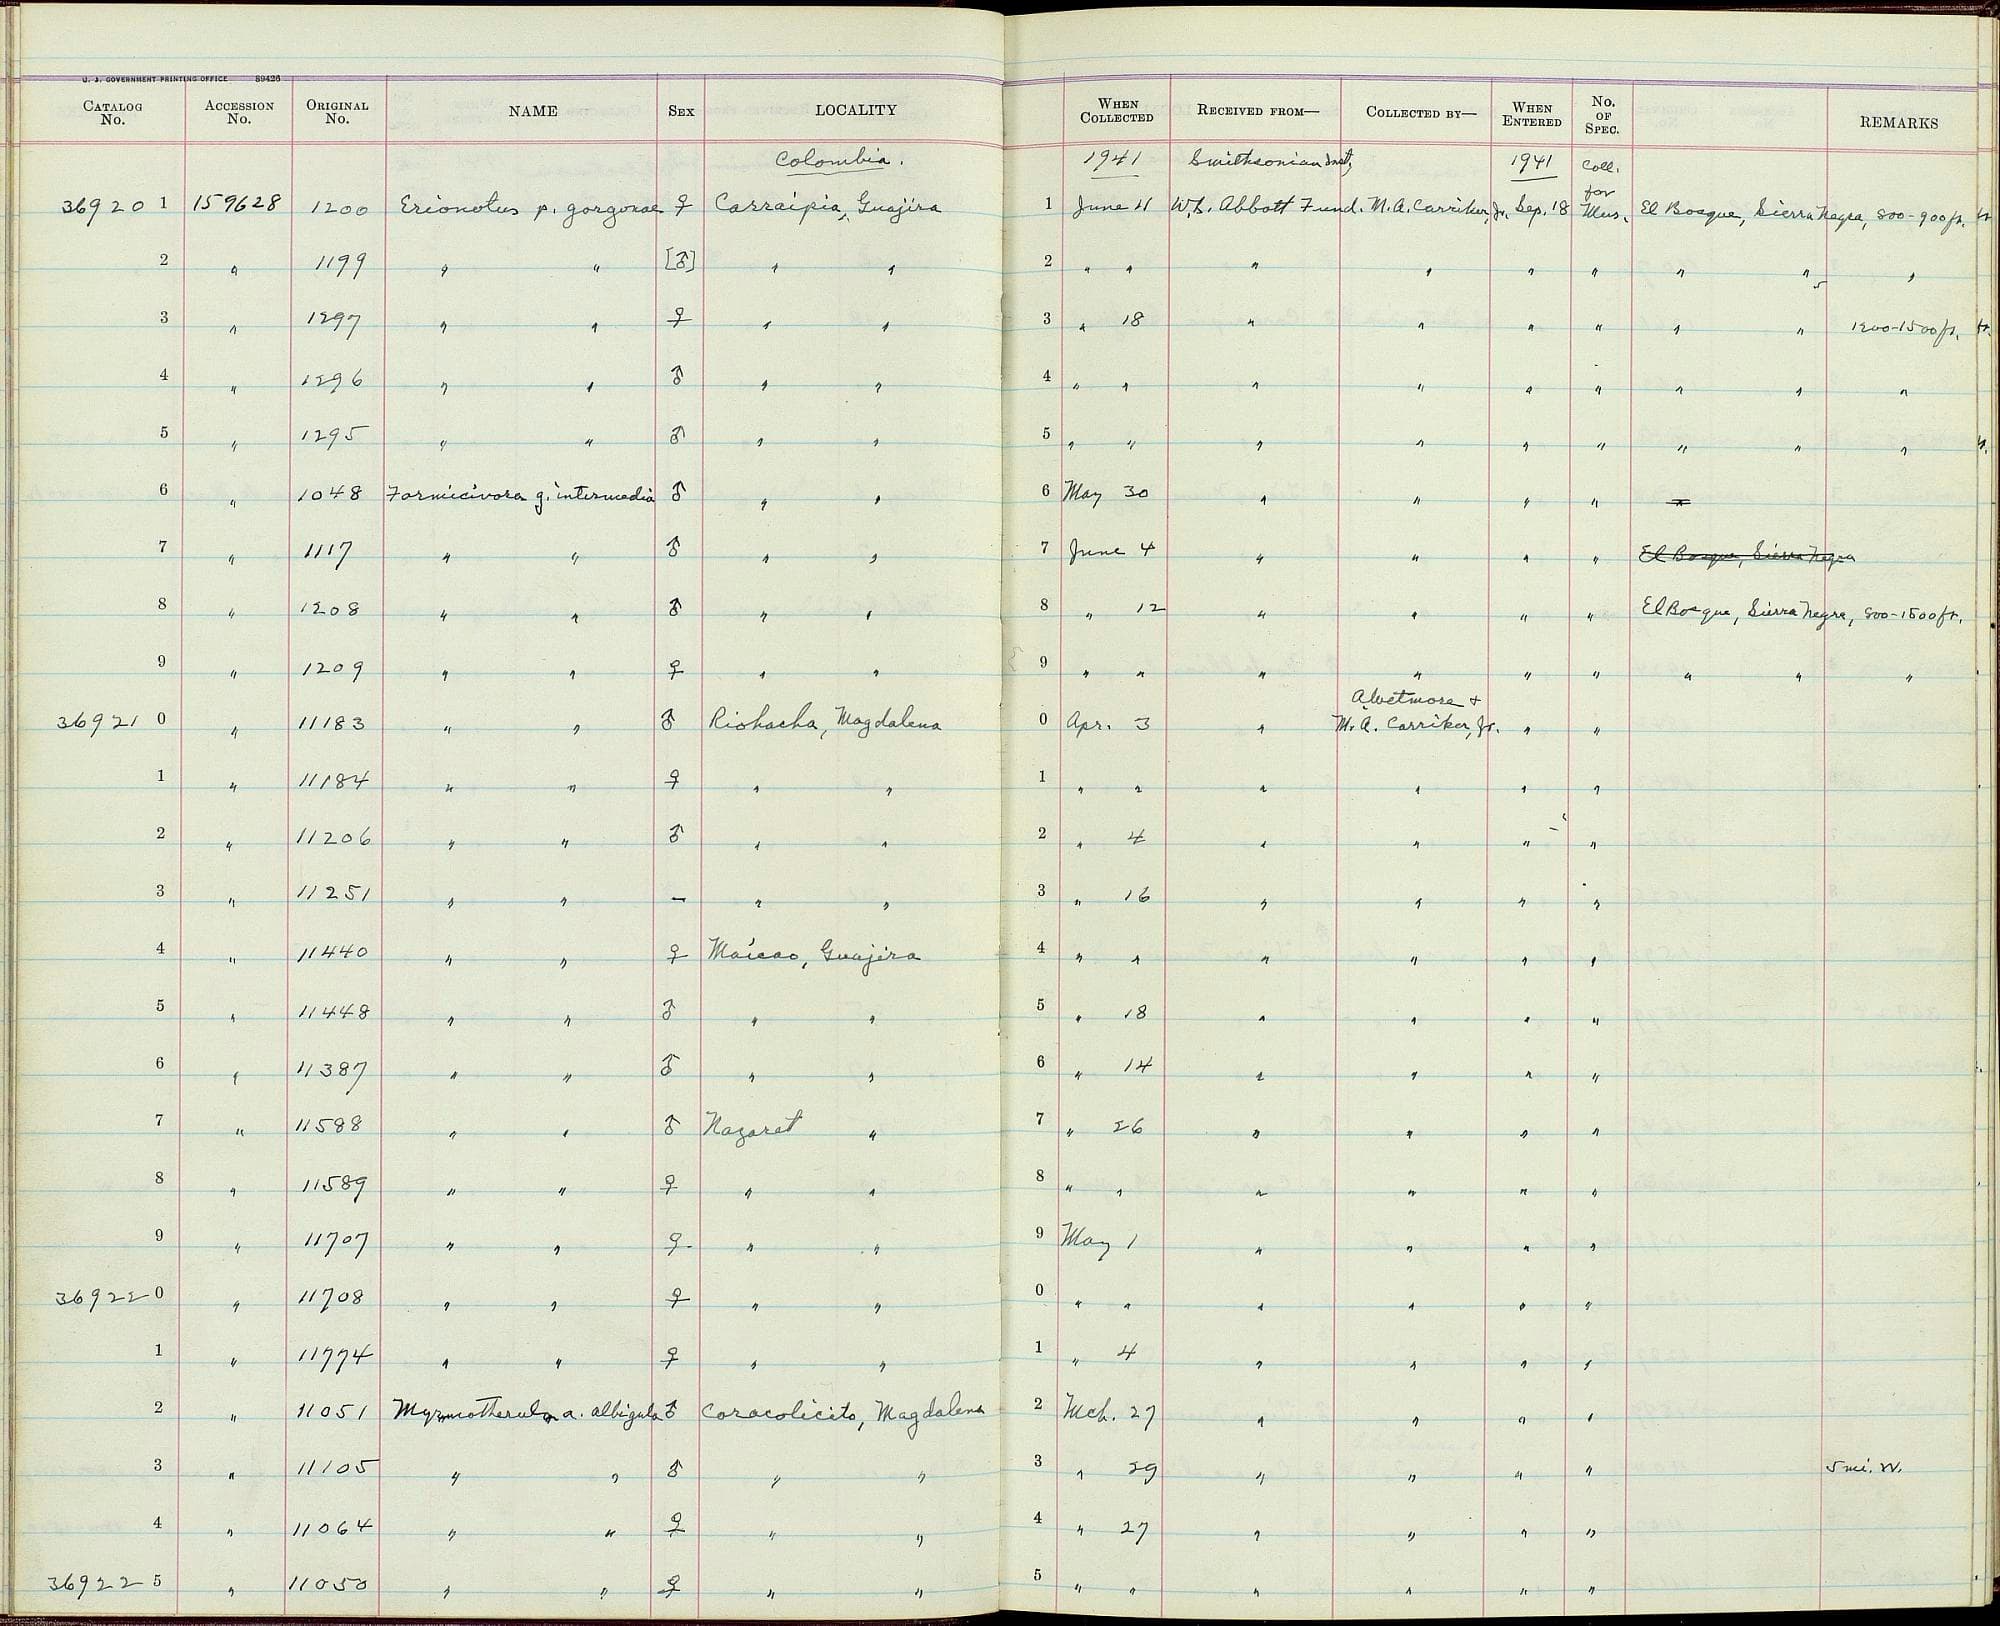 U. S. GOVERNMENT PRINTING OFFICE 89426
CATALOG No. ACCESSION No. ORIGINAL No. NAME SEX LOCALITY WHEN COLLECTED RECEIVED FROM— COLLECTED BY— WHEN ENTERED No. OF SPEC. REMARKS
Colombia. 1941 Smithsonian Inst, 1941 Coll. for
369201 159628 1200 Erionotus p. gorgonae ♀ Carraipia, Guajira 1 June 11 W. L. Abbott Fund. M. A. Carriker, Jr. Sep. 18 Mus. El Bosque, Sierra Negra, 800-900 ft.
2 " 1199 " " [♂] " " 2 " " " " " " " " "
3 " 1297 " " ♀ " " 3 " 18 " " " " " " 1200-1500 ft.
4 " 1296 " " ♂ " " 4 " " " " " " " " "
5 " 1295 " " ♂ " " 5 " " " " " " " " "
6 " 1048 Formicivora g. intermedia ♂ " " 6 May 30 " " " " "
7 " 1117 " " ♂ " " 7 June 4 " " " " El Bosque, Sierra Negra
8 " 1208 " " ♂ " " 8 " 12 " " " " El Bosque, Sierra Negra, 800-1500 ft.
9 " 1209 " " ♀ " " 9 " " " " " " " " "
A. Wetmore +
369210 " 11183 " " ♂ Riohacha, Magdalena 0 Apr. 3 " M. A. Carriker, Jr. " "
1 " 11184 " " ♀ " " 1 " " " " " "
2 " 11206 " " ♂ " " 2 " 4 " " " "
3 " 11251 " " — " " 3 " 16 " " " "
4 " 11440 " " ♀ Maicao, Guajira 4 " " " " " "
5 " 11448 " " ♂ " " 5 " 18 " " " "
6 " 11387 " " ♂ " " 6 " 14 " " " "
7 " 11588 " " ♂ Nazaret " 7 " 26 " " " "
8 " 11589 " " ♀ " " 8 " " " " " "
9 " 11707 " " ♀ " " 9 May 1 " " " "
369220 " 11708 " " ♀ " " 0 " " " " " "
1 " 11774 " " ♀ " " 1 " 4 " " " "
2 " 11051 Myrmotherula a. albigula ♂ Caracolicito, Magdalena 2 Mch. 27 " " " "
3 " 11105 " " ♂ " " 3 " 29 " " " " 5 mi. W.
4 " 11064 " " ♀ " " 4 " 27 " " " "
369225 " 11050 " " ♀ " " 5 " " " " " "